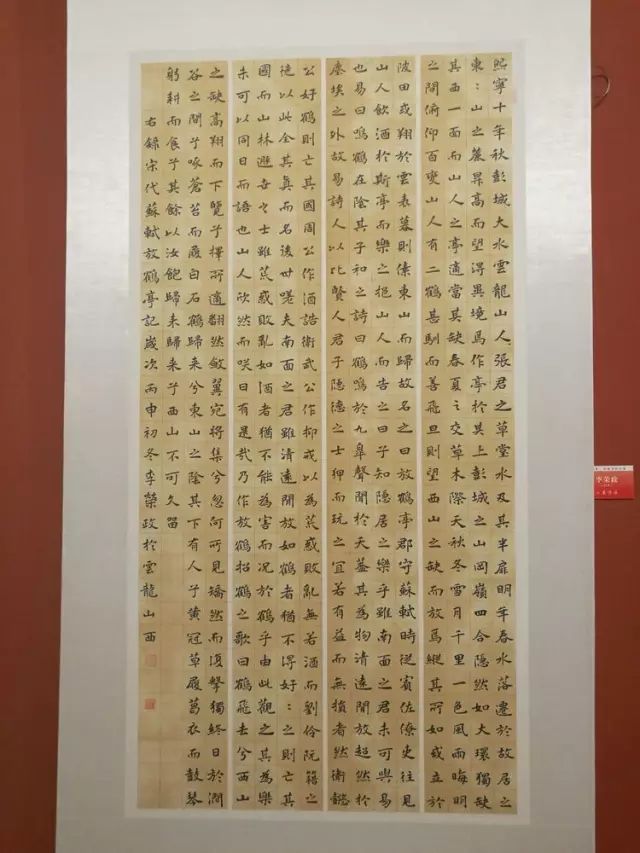 熙寧十年秋彭城大水雲龍山人張君之草堂水及其半扉明年春水落遷於故居之
東：山之麓昇高而望得異境焉作亭於其上彭城之山岡嶺四合隱然如大環獨缺
其西一面而山人之亭適當其缺春夏：之交草木際天秋冬雪月千里一色風雨晦明
之間俯仰百變山人有二鶴甚馴而善飛旦則望西山之缺而放焉縱其所如或立於
陂田或翔於雲表暮則傃東山而歸故名之曰放鶴亭郡守蘇軾時從賓佐僚吏往見
山人飲酒於斯亭而樂之挹山人而告之曰子知隱居之樂乎雖南面之君未可與易
也易曰鳴鶴在陰其子和之詩曰鶴鳴於九臯聲聞於天蓋其為物清遠閒放超然於
塵埃之外故易詩人以比賢人君子隱德之士狎而玩之宜若有益而無損者然衛懿
公好鶴則亡其國周公作酒誥衛武公作抑戒以為荒惑敗亂無若酒而劉伶阮籍之
徒以此全其真而名後世嗟夫南面之君雖清遠閒放如鶴者猶不得好：之則亡其
國而山林遯世之士雖荒惑敗亂如酒者猶不能為害而況於鶴乎由此觀之其為樂
未可以同日而語也山人欣然而咲曰有是哉乃作放鶴招鶴之歌曰鶴飛去兮西山
之缺高翔而下覽兮擇所適翻然斂翼宛將集兮忽何所見矯然而復擊獨終日於澗
谷之間兮啄蒼苔而履白石鶴歸來兮東山之陰其下有人兮黃冠草屨葛衣而鼓琴
躬耕而食兮其餘以汝飽歸來歸來兮西山不可久留
右錄宋代蘇軾放鶴亭記歲次丙申初冬李榮政於雲龍山西
李荣政